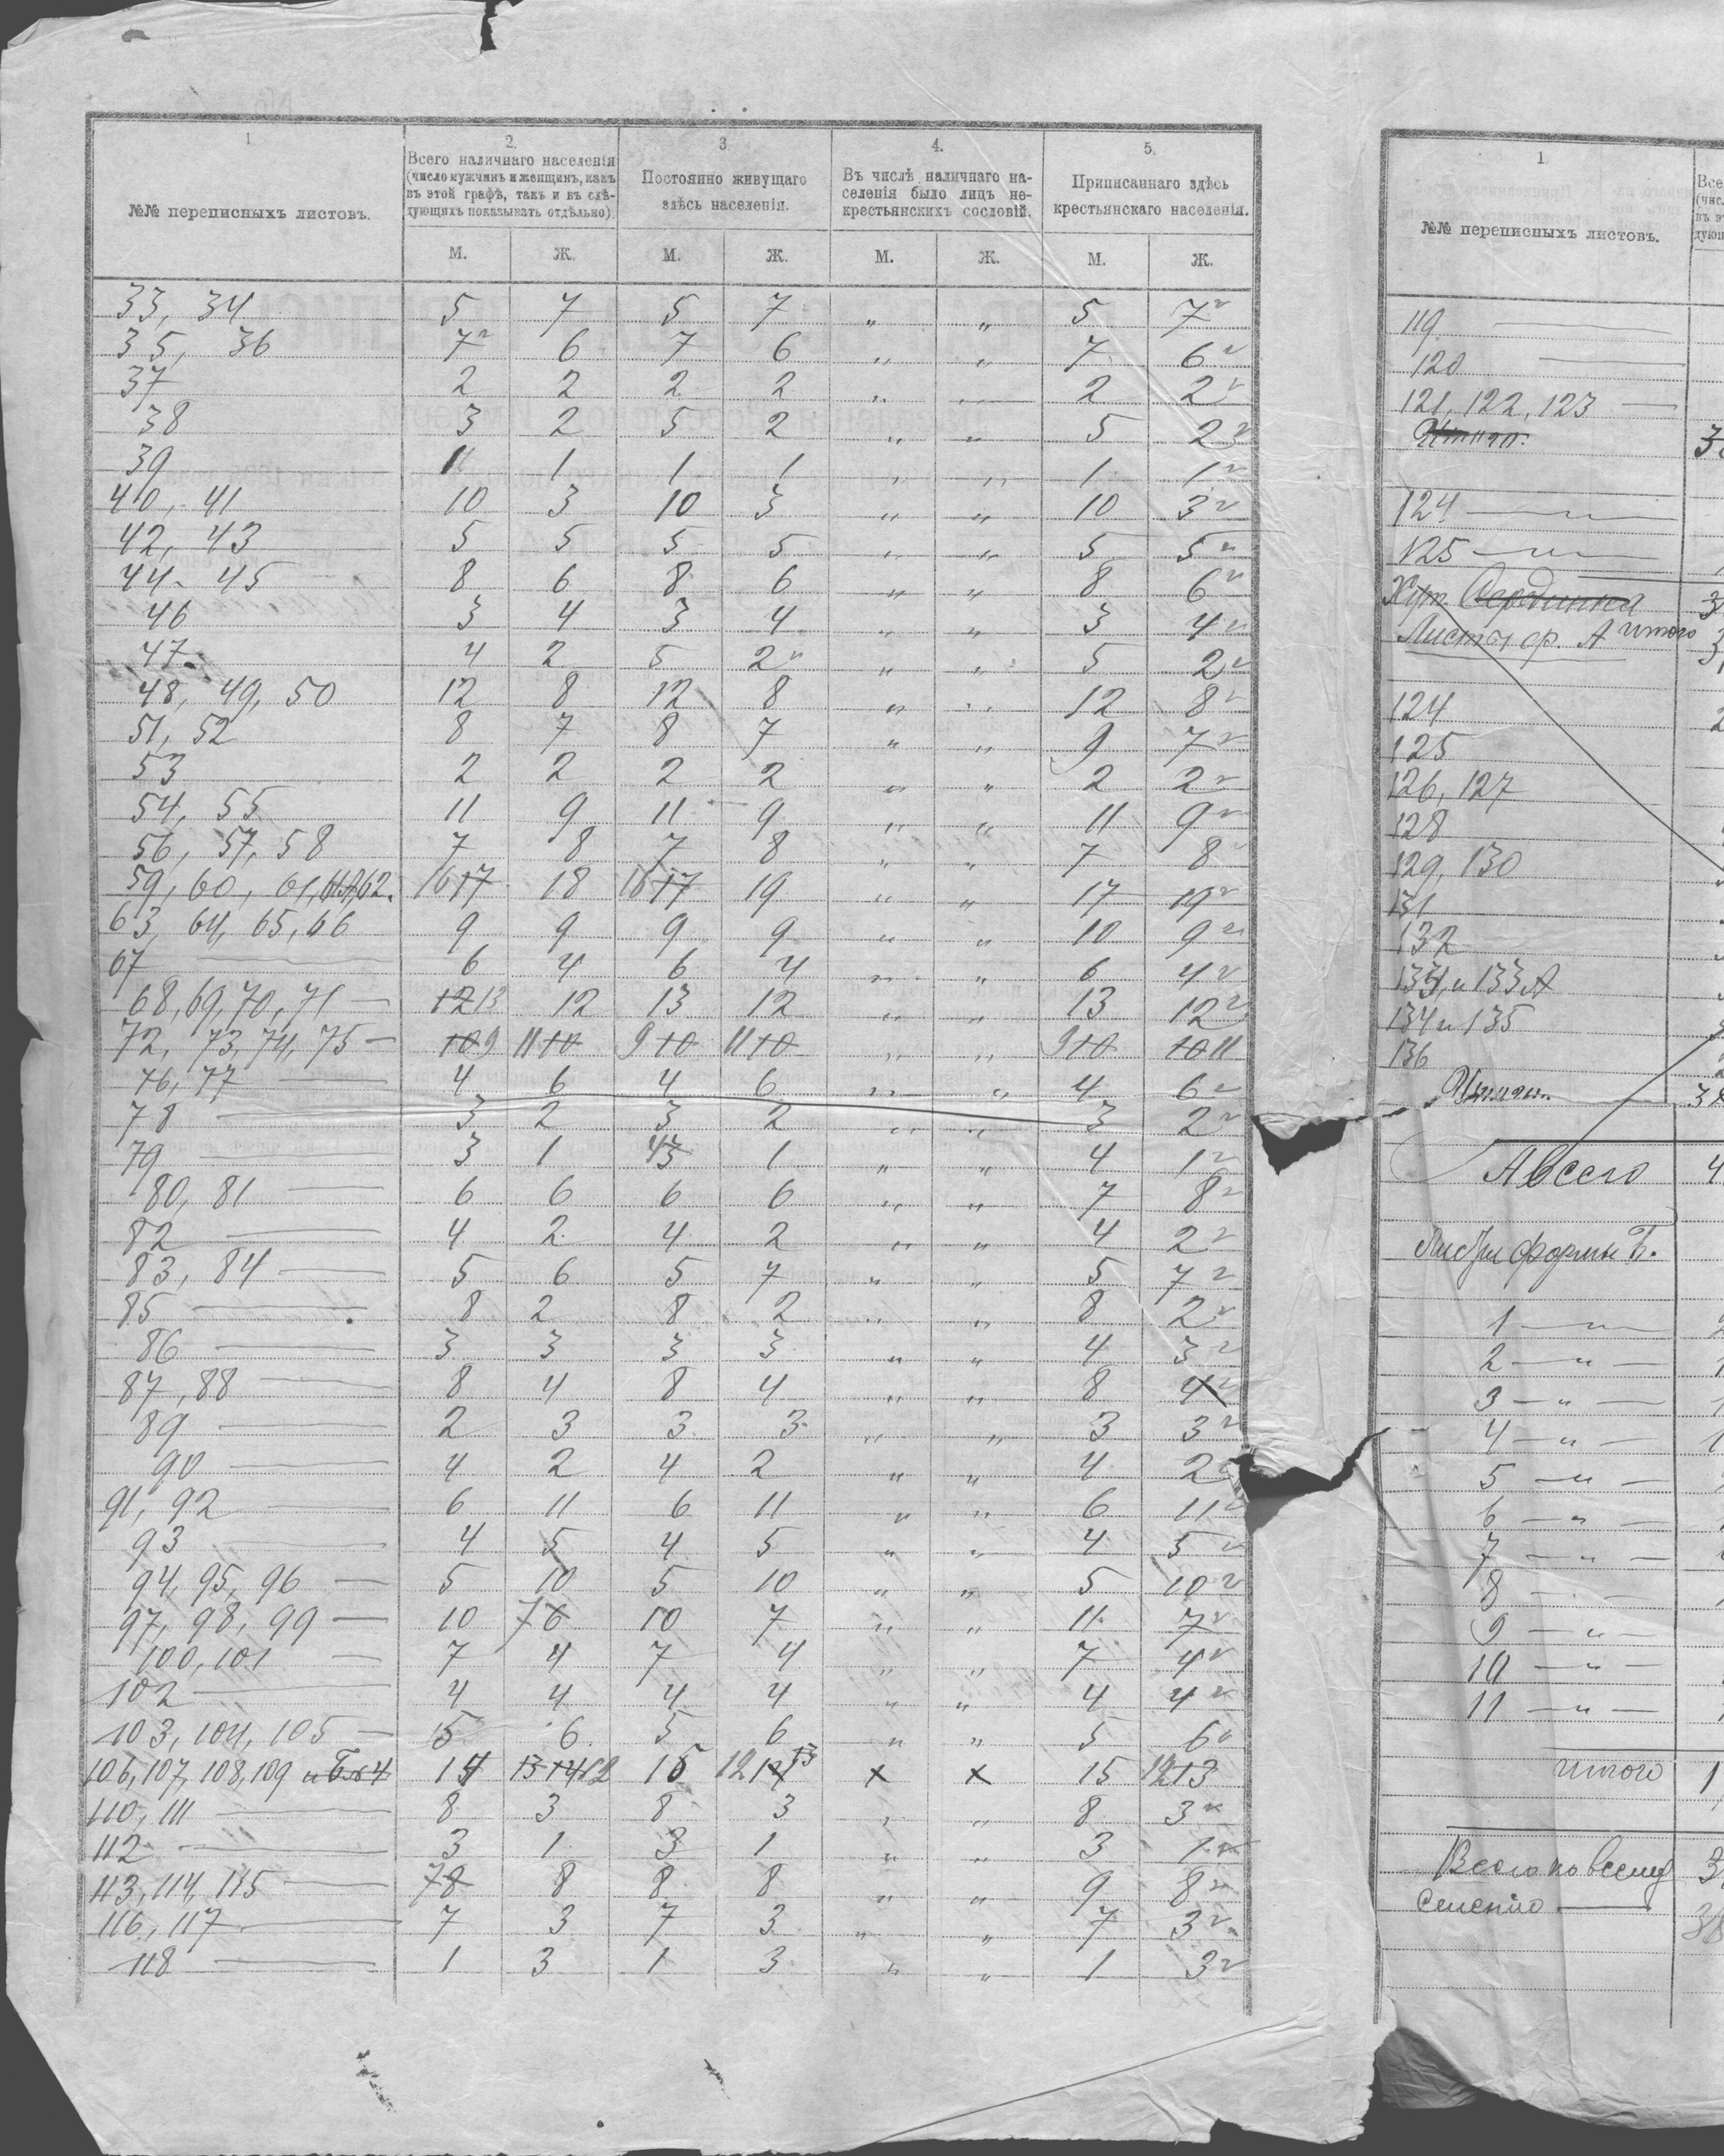 1
2.
3.
4.
5.
№№ переписныхъ листовъ.
Всего наличнаго населенія
(число мужчинъ и женщинъ, какъ
въ этой графѣ, такъ и въ слѣ-
дующихъ показывать отдѣльно)
Постоянно живущаго
здѣсь населенія.
Въ числѣ наличнаго на-
селенія было лицъ не-
крестьянскихъ сословій.
Приписаннаго здѣсь
крестьянскаго населенія.
М. Ж. М. Ж. М. Ж. М. Ж.
33, 34 5 7 5 7 „ „ 5 7
35, 36 7 6 7 6 „ „ 7 6
37 2 2 2 2 „ „ 2 2
38 3 2 5 2 „ „ 5 2
39 1 1 1 „ „ 1 1
40, 41 10 3 10 3 „ „ 10 3
42, 43 5 5 5 5 „ „ 5 5
44, 45 8 6 8 6 „ „ 8 6
46 3 4 3 4 „ „ 3 4
47 4 2 5 2 „ „ 5 2
48, 49, 50 12 8 12 8 „ „ 12 8
51, 52 8 7 8 7 „ „ 9 7
53 2 2 2 2 „ „ 2 2
54, 55 11 9 11 9 „ „ 11 9
56, 57, 58 7 8 7 8 „ „ 7 8
59, 60, 61, 61А, 62. 16 17 18 16 17 19 „ „ 17 19
63, 64, 65, 66 9 9 9 9 „ „ 10 9
67 — 6 4 6 4 „ „ 6 4
68, 69, 70, 71 — 12 13 12 13 12 „ „ 13 12
72, 73, 74, 75 — 10 9 11 10 9 10 11 10 „ „ 9 10 10 11
76, 77 — 4 6 4 6 „ „ 4 6
78 — 3 2 3 2 „ „ 3 2
79 — 3 1 4 3 1 „ „ 4 1
80, 81 — 6 6 6 6 „ „ 7 8
82 — 4 2 4 2 „ „ 4 2
83, 84 — 5 6 5 7 „ „ 5 7
85 — 8 2 8 2 „ „ 8 2
86 — 3 3 3 3 „ „ 4 3
87, 88 — 8 4 8 4 „ „ 8 4
89 — 2 3 3 3 „ „ 3 3
90 — 4 2 4 2 „ „ 4 2
91, 92 — 6 11 6 11 „ „ 6 11
93 — 4 5 4 5 „ „ 4 5
94, 95, 96 — 5 10 5 10 „ „ 5 10
97, 98, 99 — 10 7 6 10 7 „ „ 11 7
100, 101 — 7 4 7 4 „ „ 7 4
102 — 4 4 4 4 „ „ 4 4
103, 104, 105 — 5 6 5 6 „ „ 5 6
106, 107, 108, 109 14 13 14 12 15 12 13 × × 15 12 13
110, 111 — 8 3 8 3 „ „ 8 3
112 — 3 1 3 1 „ „ 3 1
113, 114, 115 — 7 8 8 8 8 „ „ 9 8
116, 117 — 7 3 7 3 „ „ 7 3
118 — 1 3 1 3 „ „ 1 3
1.
№№ переписныхъ листовъ.
Все
(чис
въ э
дующ
119 —
120 —
121, 122, 123 —
Итого.
124 — „ —
125 — „ —
Хут. Середина
Листы ф. А итого
124
125
126, 127
128
129, 130
131
132
133, и 133 А
134 и 135
136
Итого.
А всего 4
Листы формы Б.
1 — „ —
2 — „ —
3 — „ —
4 — „ —
5 — „ —
6 — „ —
7 — „ —
8 —
9 — „ —
10 — „ —
11 — „ —
итого 1
Всего по всему 3
селенію —